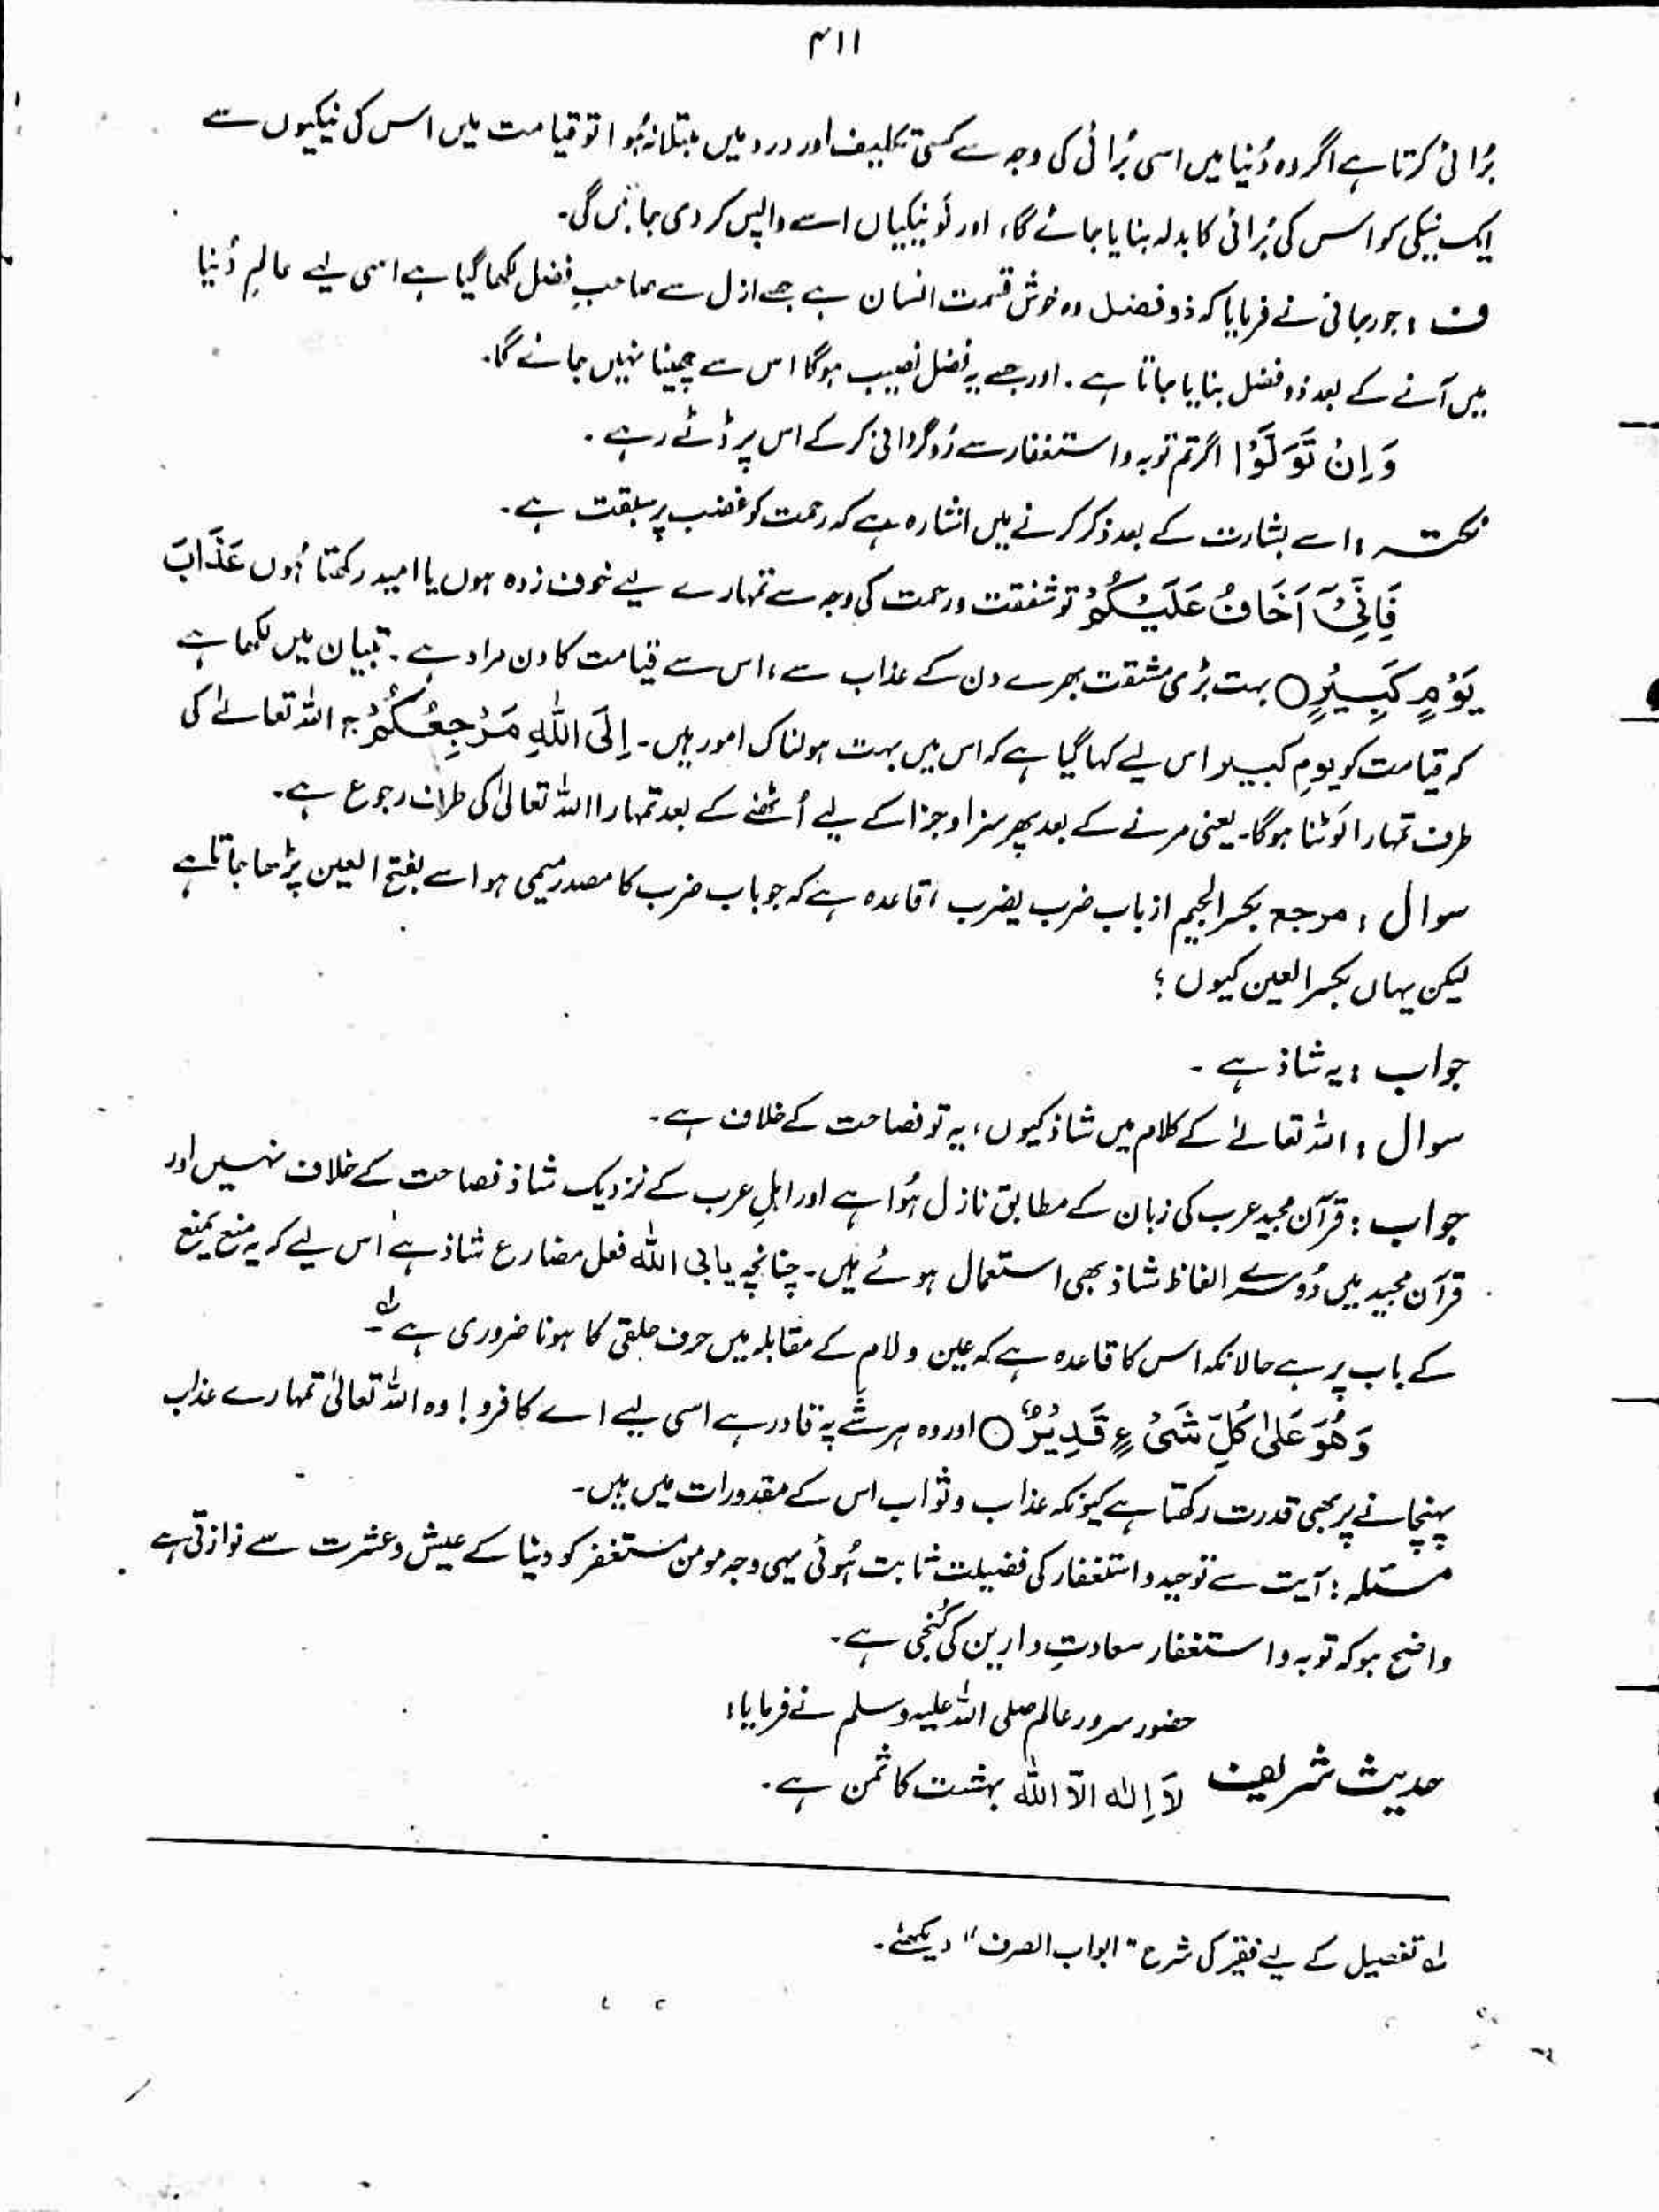 ۴۱۱
بُرائی کرتا ہے اگر وہ دُنیا میں اسی بُرائی کی وجہ سے کسی تکلیف اور درد میں مبتلا نہ ہُوا تو قیامت میں اس کی نیکیوں سے
ایک نیکی کو اس کی بُرائی کا بدلہ بنایا جائے گا، اور نَو نیکیاں اسے واپس کر دی جائیں گی۔
ف : جورجانی نے فرمایا کہ ذو فضل وہ خوش قسمت انسان ہے جسے ازل سے صاحبِ فضل لکھا گیا ہے اسی لیے عالمِ دُنیا
میں آنے کے بعد ذو فضل بنایا جاتا ہے۔ اور جسے یہ فضل نصیب ہوگا اس سے چھینا نہیں جائے گا۔
وَاِنْ تَوَلَّوْا اگر تم توبہ و استغفار سے رُوگردانی کرکے اس پر ڈٹے رہے ۔
نکتہ : اسے بشارت کے بعد ذکر کرنے میں اشارہ ہے کہ رحمت کو غضب پر سبقت ہے۔
فَاِنِّیْٓ اَخَافُ عَلَیْکُمْ تو شفقت ورحمت کی وجہ سے تمہارے لیے خوف زدہ ہوں یا امید رکھتا ہُوں عَذَابَ
یَوْمٍ کَبِیْرٍ○ بہت بڑی مشقت بھرے دن کے عذاب سے، اس سے قیامت کا دن مراد ہے۔ تبیان میں لکھا ہے
کہ قیامت کو یومِ کبیر اس لیے کہا گیا ہے کہ اس میں بہت ہولناک امور ہیں۔ اِلَی اللّٰهِ مَرْجِعُکُمْ ج اللہ تعالےٰ کی
طرف تمہارا لَوٹنا ہوگا۔ یعنی مرنے کے بعد پھر سزا و جزا کے لیے اُٹھنے کے بعد تمہارا اللہ تعالیٰ کی طرف رجوع ہے۔
سوال : مرجع بکسر الجیم از باب ضرب یضرب ، قاعدہ ہے کہ جو باب ضرب کا مصدر میمی ہو اسے بفتح العین پڑھا جاتا ہے
لیکن یہاں بکسر العین کیوں ؟
جواب : یہ شاذ ہے ۔
سوال : اللہ تعالےٰ کے کلام میں شاذ کیوں، یہ تو فصاحت کے خلاف ہے۔
جواب : قرآن مجید عرب کی زبان کے مطابق نازل ہُوا ہے اور اہلِ عرب کے نزدیک شاذ فصاحت کے خلاف نہیں اور
قرآن مجید میں دُوسرے الفاظ شاذ بھی استعمال ہوئے ہیں۔ چنانچہ یابی اللّٰہ فعل مضارع شاذ ہے اس لیے کہ یہ منع یمنع
کے باب پر ہے حالانکہ اس کا قاعدہ ہے کہ عین و لام کے مقابلہ میں حرف حلقی کا ہونا ضروری ہے لہ
وَهُوَ عَلٰی کُلِّ شَیْءٍ قَدِیْرٌ○ اور وہ ہر شَے پہ قادر ہے اسی لیے اے کافرو ! وہ اللہ تعالیٰ تمہارے عذاب
پہنچانے پر بھی قدرت رکھتا ہے کیونکہ عذاب و ثواب اس کے مقدورات میں ہیں۔
مسئلہ : آیت سے توحید و استغفار کی فضیلت ثابت ہُوئی یہی وجہ مومن مستغفر کو دنیا کے عیش و عشرت سے نوازتی ہے
واضح ہو کہ توبہ و استغفار سعادتِ دارین کی کُنجی ہے۔
حضور سرور عالم صلی اللہ علیہ وسلم نے فرمایا :
حدیث شریف لاَ اِلٰه الاّ اللّٰه بہشت کا ثمن ہے۔
لہ تفصیل کے لیے فقیر کی شرح "ابواب الصرف" دیکھئے۔